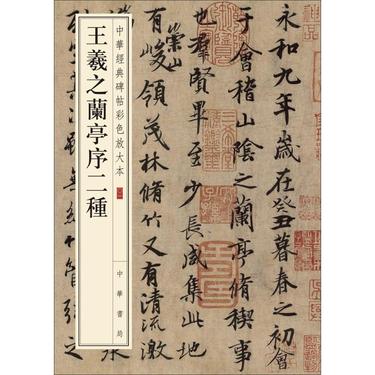 永和九年歲在癸丑暮春之初會
于會稽山陰之蘭亭脩稧事
也羣賢畢至少長咸集此地
有崇山峻領茂林脩竹又有清流激
中華經典碑帖彩色放大本
王羲之蘭亭序二種
中華書局